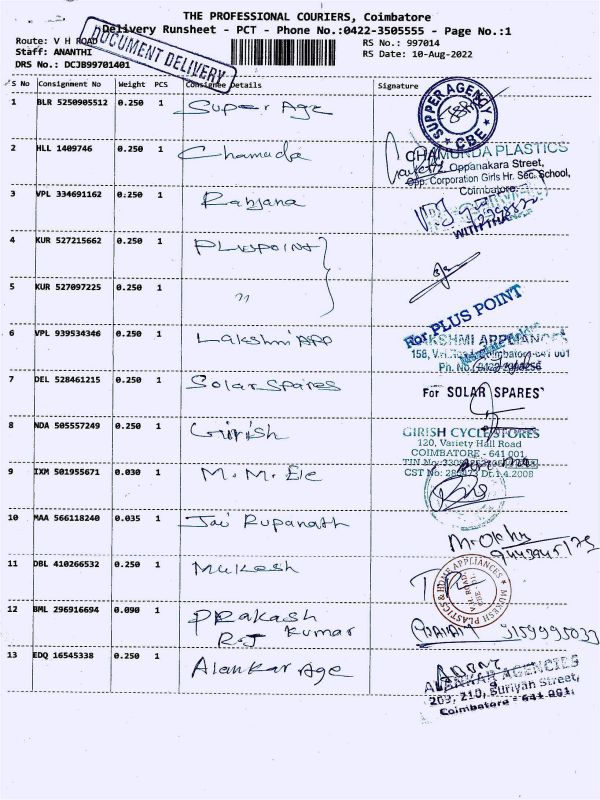 THE PROFESSIONAL COURIERS, Coimbatore
Delivery Runsheet - PCT - Phone No.:0422-3505555 - Page No.:1
Route: V H ROAD
RS No.: 997014
Staff: ANANTHI
RS Date: 10-Aug-2022
DRS No.: DCJB99701401
DOCUMENT DELIVERY
S No Consignment No Weight PCS Consignee Details Signature
1 BLR 5250905512 0.250 1 Super Age
SUPPER AGENCY CBE
2 HLL 1409746 0.250 1 Chamuda
CHAMUNDA PLASTICS
Oppanakara Street,
Opp. Corporation Girls Hr. Sec. School,
Coimbatore
3 VPL 334691162 0.250 1 Ranjana
4 KUR 527215662 0.250 1 PLUSPOINT
5 KUR 527097225 0.250 1 "
For PLUS POINT
6 VPL 939534346 0.250 1 Lakshmi APP
LAKSHMI APPLIANCES
158, V.H. Road, Coimbatore-641 001
7 DEL 528461215 0.250 1 Solar Spares
For SOLAR SPARES
8 NDA 505557249 0.250 1 Girish
GIRISH CYCLE STORES
120, Variety Hall Road
COIMBATORE - 641 001
9 IXM 501955671 0.030 1 M. M. Ele
10 MAA 566118240 0.035 1 Jai Rupanath
11 DBL 410266532 0.250 1 Mukesh
MUKESH PLASTICS & HOME APPLIANCES
V.H. ROAD
12 BML 296916694 0.090 1 PRakash
R.J Kumar
13 EDQ 16545338 0.250 1 Alankar Age
ALANKAR AGENCIES
209, 210, Suriyah Street,
Coimbatore - 641 001.